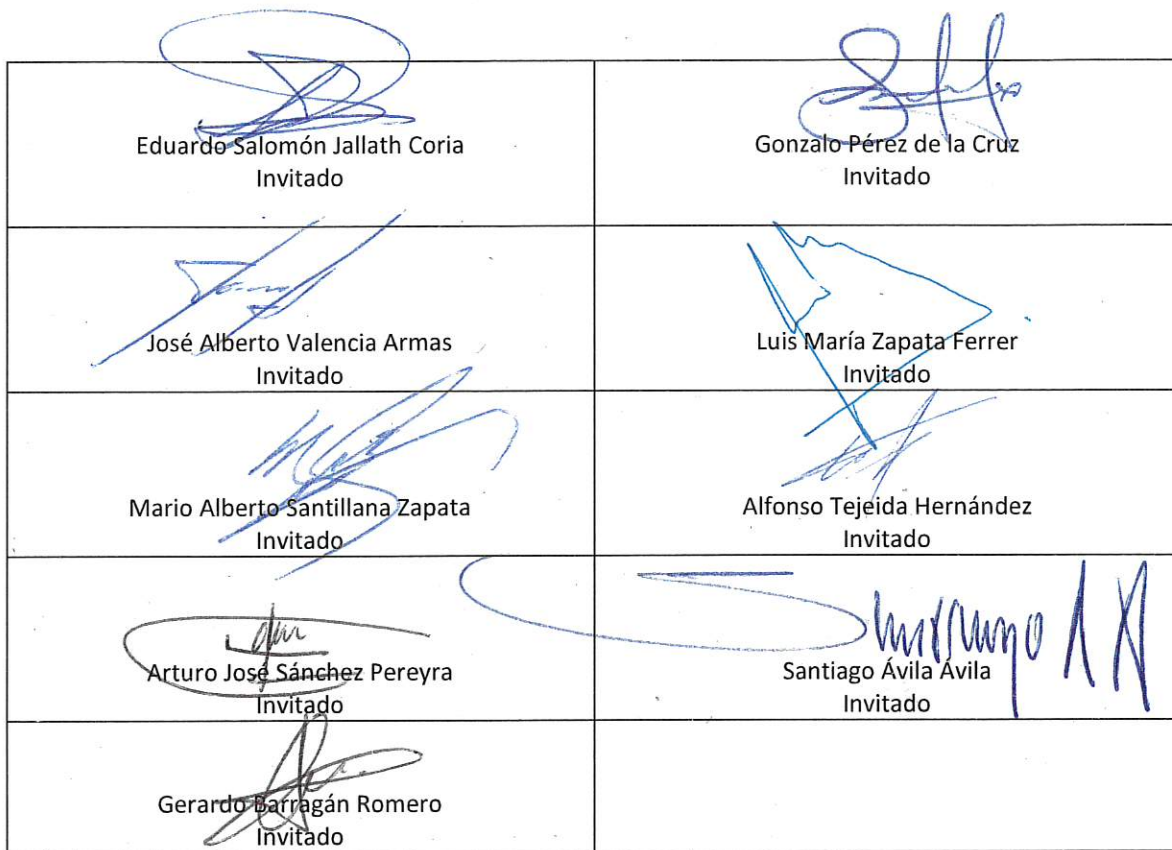 Eduardo Salomón Jallath Coria
Invitado
Gonzalo Pérez de la Cruz
Invitado
José Alberto Valencia Armas
Invitado
Luis María Zapata Ferrer
Invitado
Mario Alberto Santillana Zapata
Invitado
Alfonso Tejeida Hernández
Invitado
Arturo José Sánchez Pereyra
Invitado
Santiago Ávila Ávila
Invitado
Gerardo Barragán Romero
Invitado